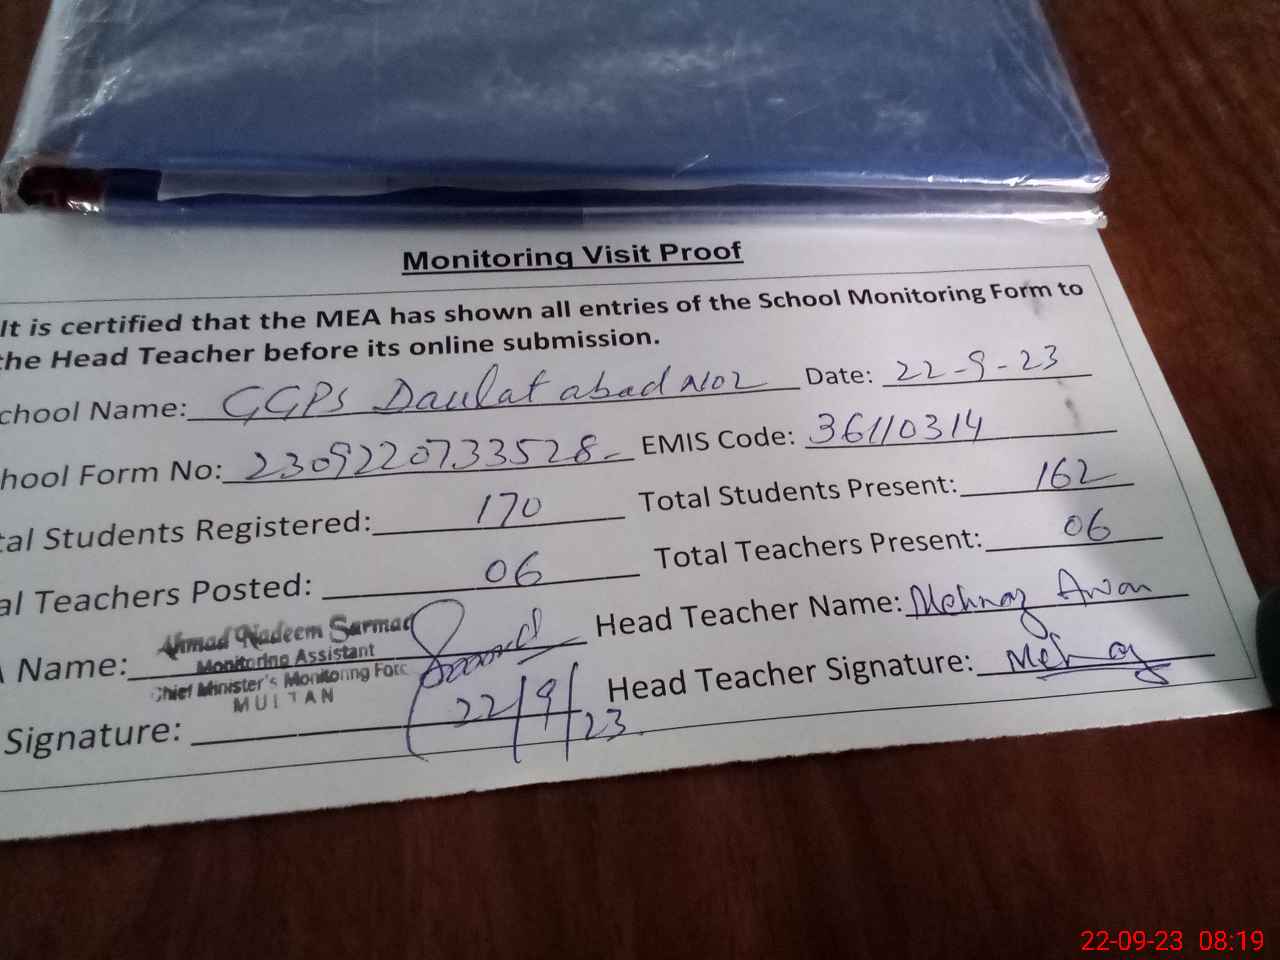 Monitoring Visit Proof
It is certified that the MEA has shown all entries of the School Monitoring Form to
the Head Teacher before its online submission.
chool Name: GGPS Daulat abad No2 Date: 22-9-23
hool Form No: 2309220733528- EMIS Code: 36110314
tal Students Registered: 170 Total Students Present: 162
al Teachers Posted: 06 Total Teachers Present: 06
Name: Ahmad Nadeem Sarmad Head Teacher Name: Mehnaz Awan
Monitoring Assistant
Chief Minister's Monitoring Forc
MULTAN
Signature: 22/9/23. Head Teacher Signature: Mehnaz
22-09-23 08:19